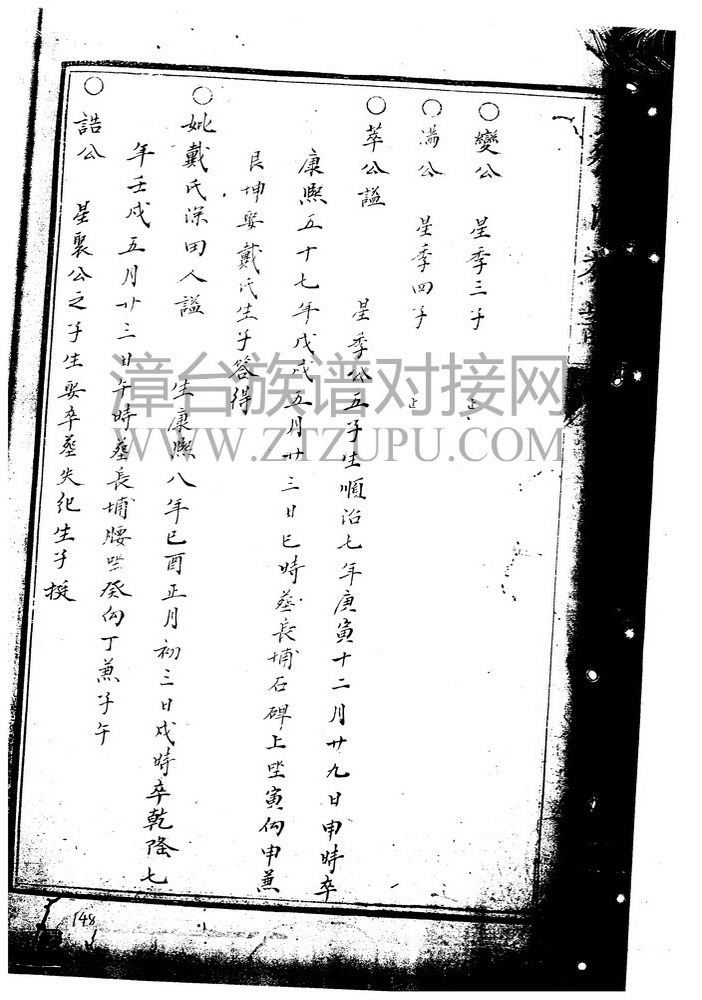 ○變公 星季三子 止
○滿公 星季四子 止
○萃公謚 星季公五子生順治七年庚寅十二月廿九日申時卒
康熙五十七年戊戌五月廿三日巳時葬長埔石碑上坐寅向申兼
艮坤娶戴氏生子答得
○妣戴氏深田人謚 生康熙八年己酉正月初三日戌時卒乾隆七
年壬戌五月廿三日午時葬長埔腰坐癸向丁兼子午
○誥公 星襄公之子生娶卒葬失紀生子挺
148
漳台族谱对接网
WWW.ZTZUPU.COM